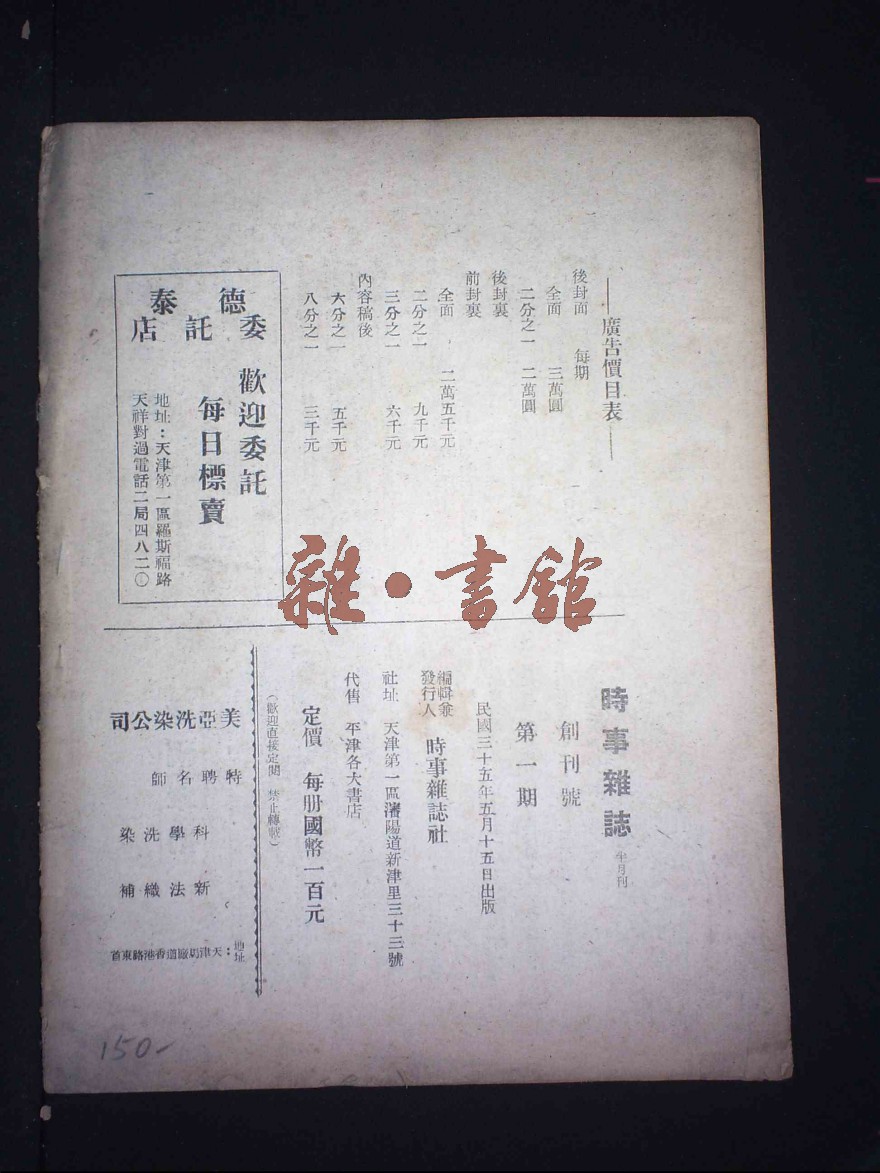 ——廣告價目表——
後封面　每期
全面　三萬圓
二分之一　二萬圓
後封裏
前封裏
全面　二萬五千元
二分之一　九千元
三分之一　六千元
內容稿後
六分之一　五千元
八分之一　三千元
德泰
委託店
歡迎委託
每日標賣
地址：天津第一區羅斯福路
天祥對過電話二局四八二〇
雜·書館
時事雜誌 半月刊
創刊號
第一期
民國三十五年五月十五日出版
編輯兼
發行人　時事雜誌社
社址　天津第一區瀋陽道新津里三十三號
代售　平津各大書店
定價　每册國幣一百元
（歡迎直接定閱　禁止轉載）
美亞洗染公司
特聘名師
科學洗染
新法織補
地址：天津馬廠道香港路東首
150-